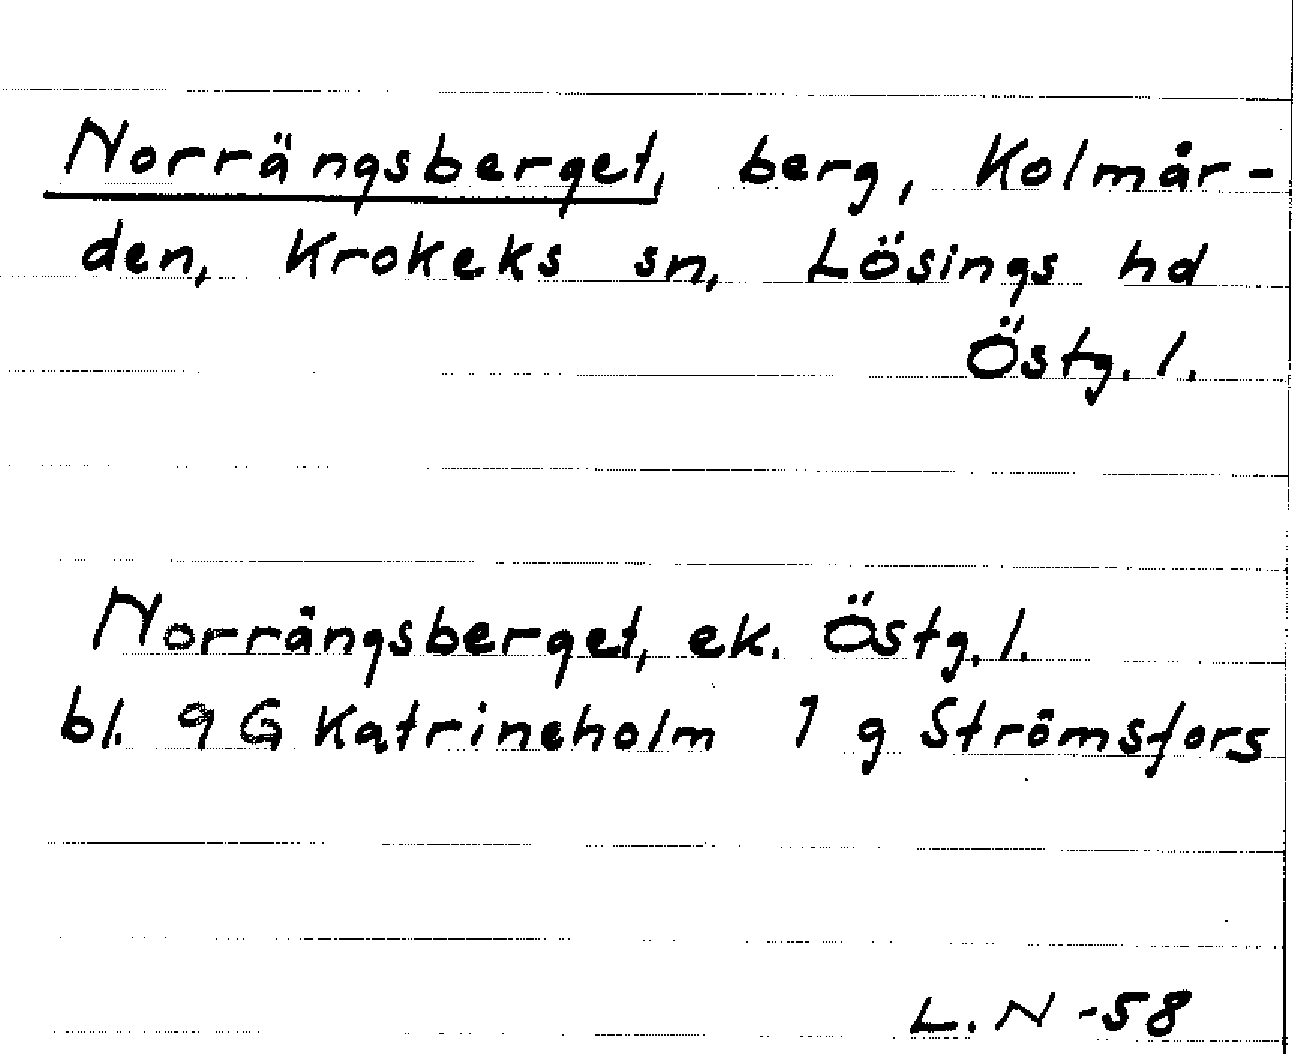 Norrängsberget, berg, Kolmår-
den, Krokeks sn, Lösings hd
Östg. l.
Norrängsberget, ek. Östg. l.
bl. 9 G Katrineholm 1 g Strömsfors
L. N -58